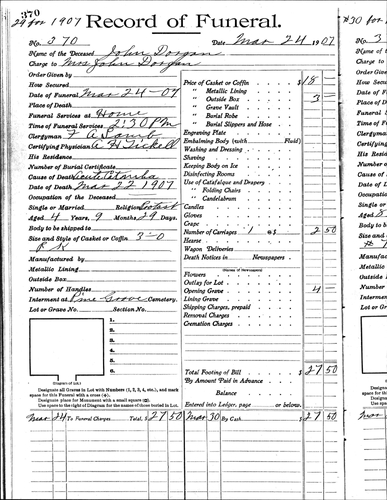 370
29 for 1907 Record of Funeral. #30 for
No. 370 Date Mar 24 1907 No. 3
Name of the Deceased John Dorgan
Charge to Mrs John Dorgan
Order Given by
How Secured
Date of Funeral Mar 24-07
Place of Death
Funeral Services at Home
Time of Funeral Services 2:30 PM
Clergyman F A Lamb
Certifying Physician A H Tickell
His Residence
Number of Burial Certificate
Cause of Death Acute
Date of Death Mar 22 1907
Occupation of the Deceased
Single or Married Religion Protest
Aged 4 Years, 9 Months, 29 Days.
Body to be shipped to
Size and Style of Casket or Coffin 3-0
P K
Manufactured by
Metallic Lining
Outside Box
Number of Handles
Interment at Pine Grove Cemetery.
Lot or Grave No. Section No.
1.
2.
3.
4.
5.
6.
(Diagram of Lot.)
Designate all Graves in Lot with Numbers (1, 2, 3, 4, etc.), and mark
space for this Funeral with a cross
Designate place for Monument with a small square
Use space to right of Diagram for the names of those buried in Lot.
Price of Casket or Coffin $ 18
" Metallic Lining
" Outside Box 3 —
" Grave Vault
" Burial Robe
" Burial Slippers and Hose
Engraving Plate
Embalming Body (with Fluid)
Washing and Dressing
Shaving
Keeping Body on Ice
Disinfecting Rooms
Use of Catafalque and Drapery
" Folding Chairs
" Candelabrum
Candles
Gloves
Crape
Number of Carriages 1 @ $ 2 50
Hearse
Wagon Deliveries
Death Notices in Newspapers
(Names of Newspapers)
Flowers
Outlay for Lot
Opening Grave 4 —
Lining Grave
Shipping Charges, prepaid
Removal Charges
Cremation Charges
Total Footing of Bill $ 27 50
By Amount Paid in Advance
Balance
Entered into Ledger, page or below.
Mar 24 To Funeral Charges Total, $ 27 50 Mar 30 By Cash $ 27 50